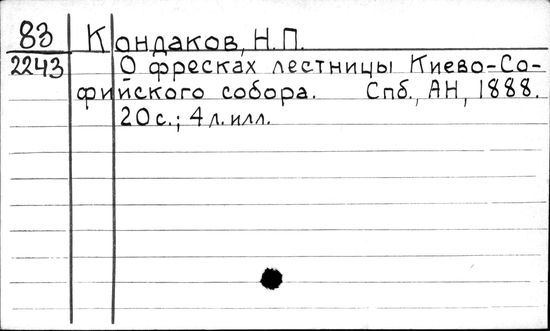 83 Кондаков, Н.П.
2243 О фресках лестницы Киево-Со-
фийского собора. Спб., АН, 1888.
20 с.; 4 л. илл.